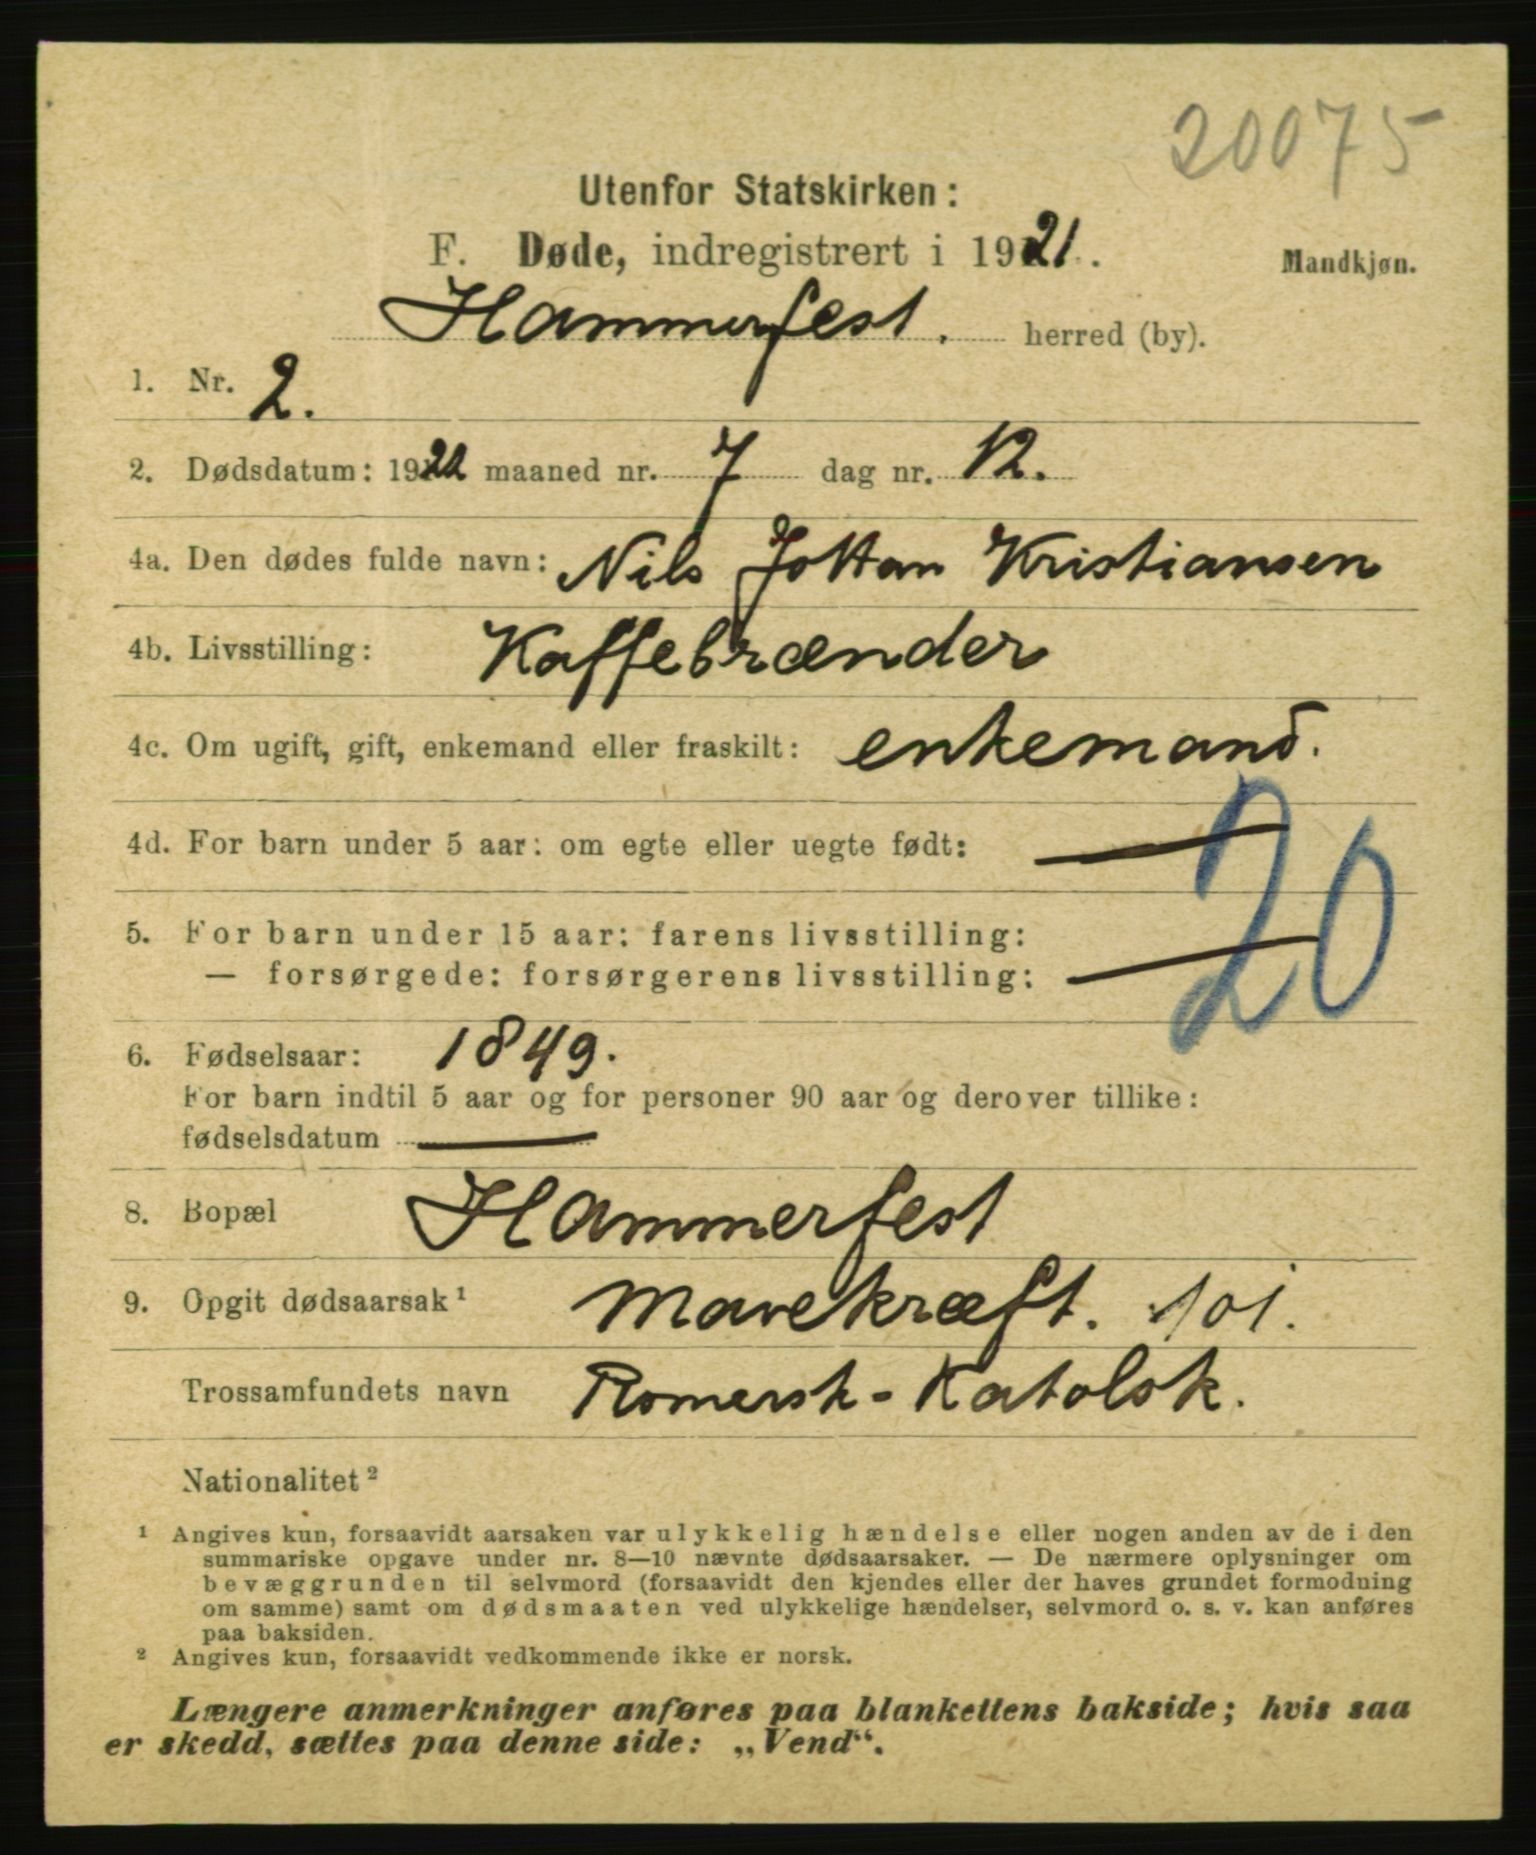 20075
Utenfor Statskirken:
F. Døde, indregistrert i 1921. Mandkjøn.
Hammerfest. herred (by).
1. Nr. 2.
2. Dødsdatum: 19 maaned nr. 7 dag nr. 12.
4a. Den dødes fulde navn: Nils Johan Kristiansen
4b. Livsstilling: Kaffebrænder
4c. Om ugift, gift, enkemand eller fraskilt: enkemand.
4d. For barn under 5 aar: om egte eller uegte født: —
20
5. For barn under 15 aar: farens livsstilling:
— forsørgede: forsørgerens livsstilling: —
6. Fødselsaar: 1849.
For barn indtil 5 aar og for personer 90 aar og derover tillike:
fødselsdatum —
8. Bopæl Hammerfest
9. Opgit dødsaarsak¹ Mavekræft. 101.
Trossamfundets navn Romersk-Katolsk.
Nationalitet²
¹ Angives kun, forsaavidt aarsaken var ulykkelig hændelse eller nogen anden av de i den
summariske opgave under nr. 8—10 nævnte dødsaarsaker. — De nærmere oplysninger om
bevæggrunden til selvmord (forsaavidt den kjendes eller der haves grundet formodning
om samme) samt om dødsmaaten ved ulykkelige hændelser, selvmord o. s. v. kan anføres
paa baksiden.
² Angives kun, forsaavidt vedkommende ikke er norsk.
Længere anmerkninger anføres paa blankettens bakside; hvis saa
er skedd, sættes paa denne side: „Vend“.